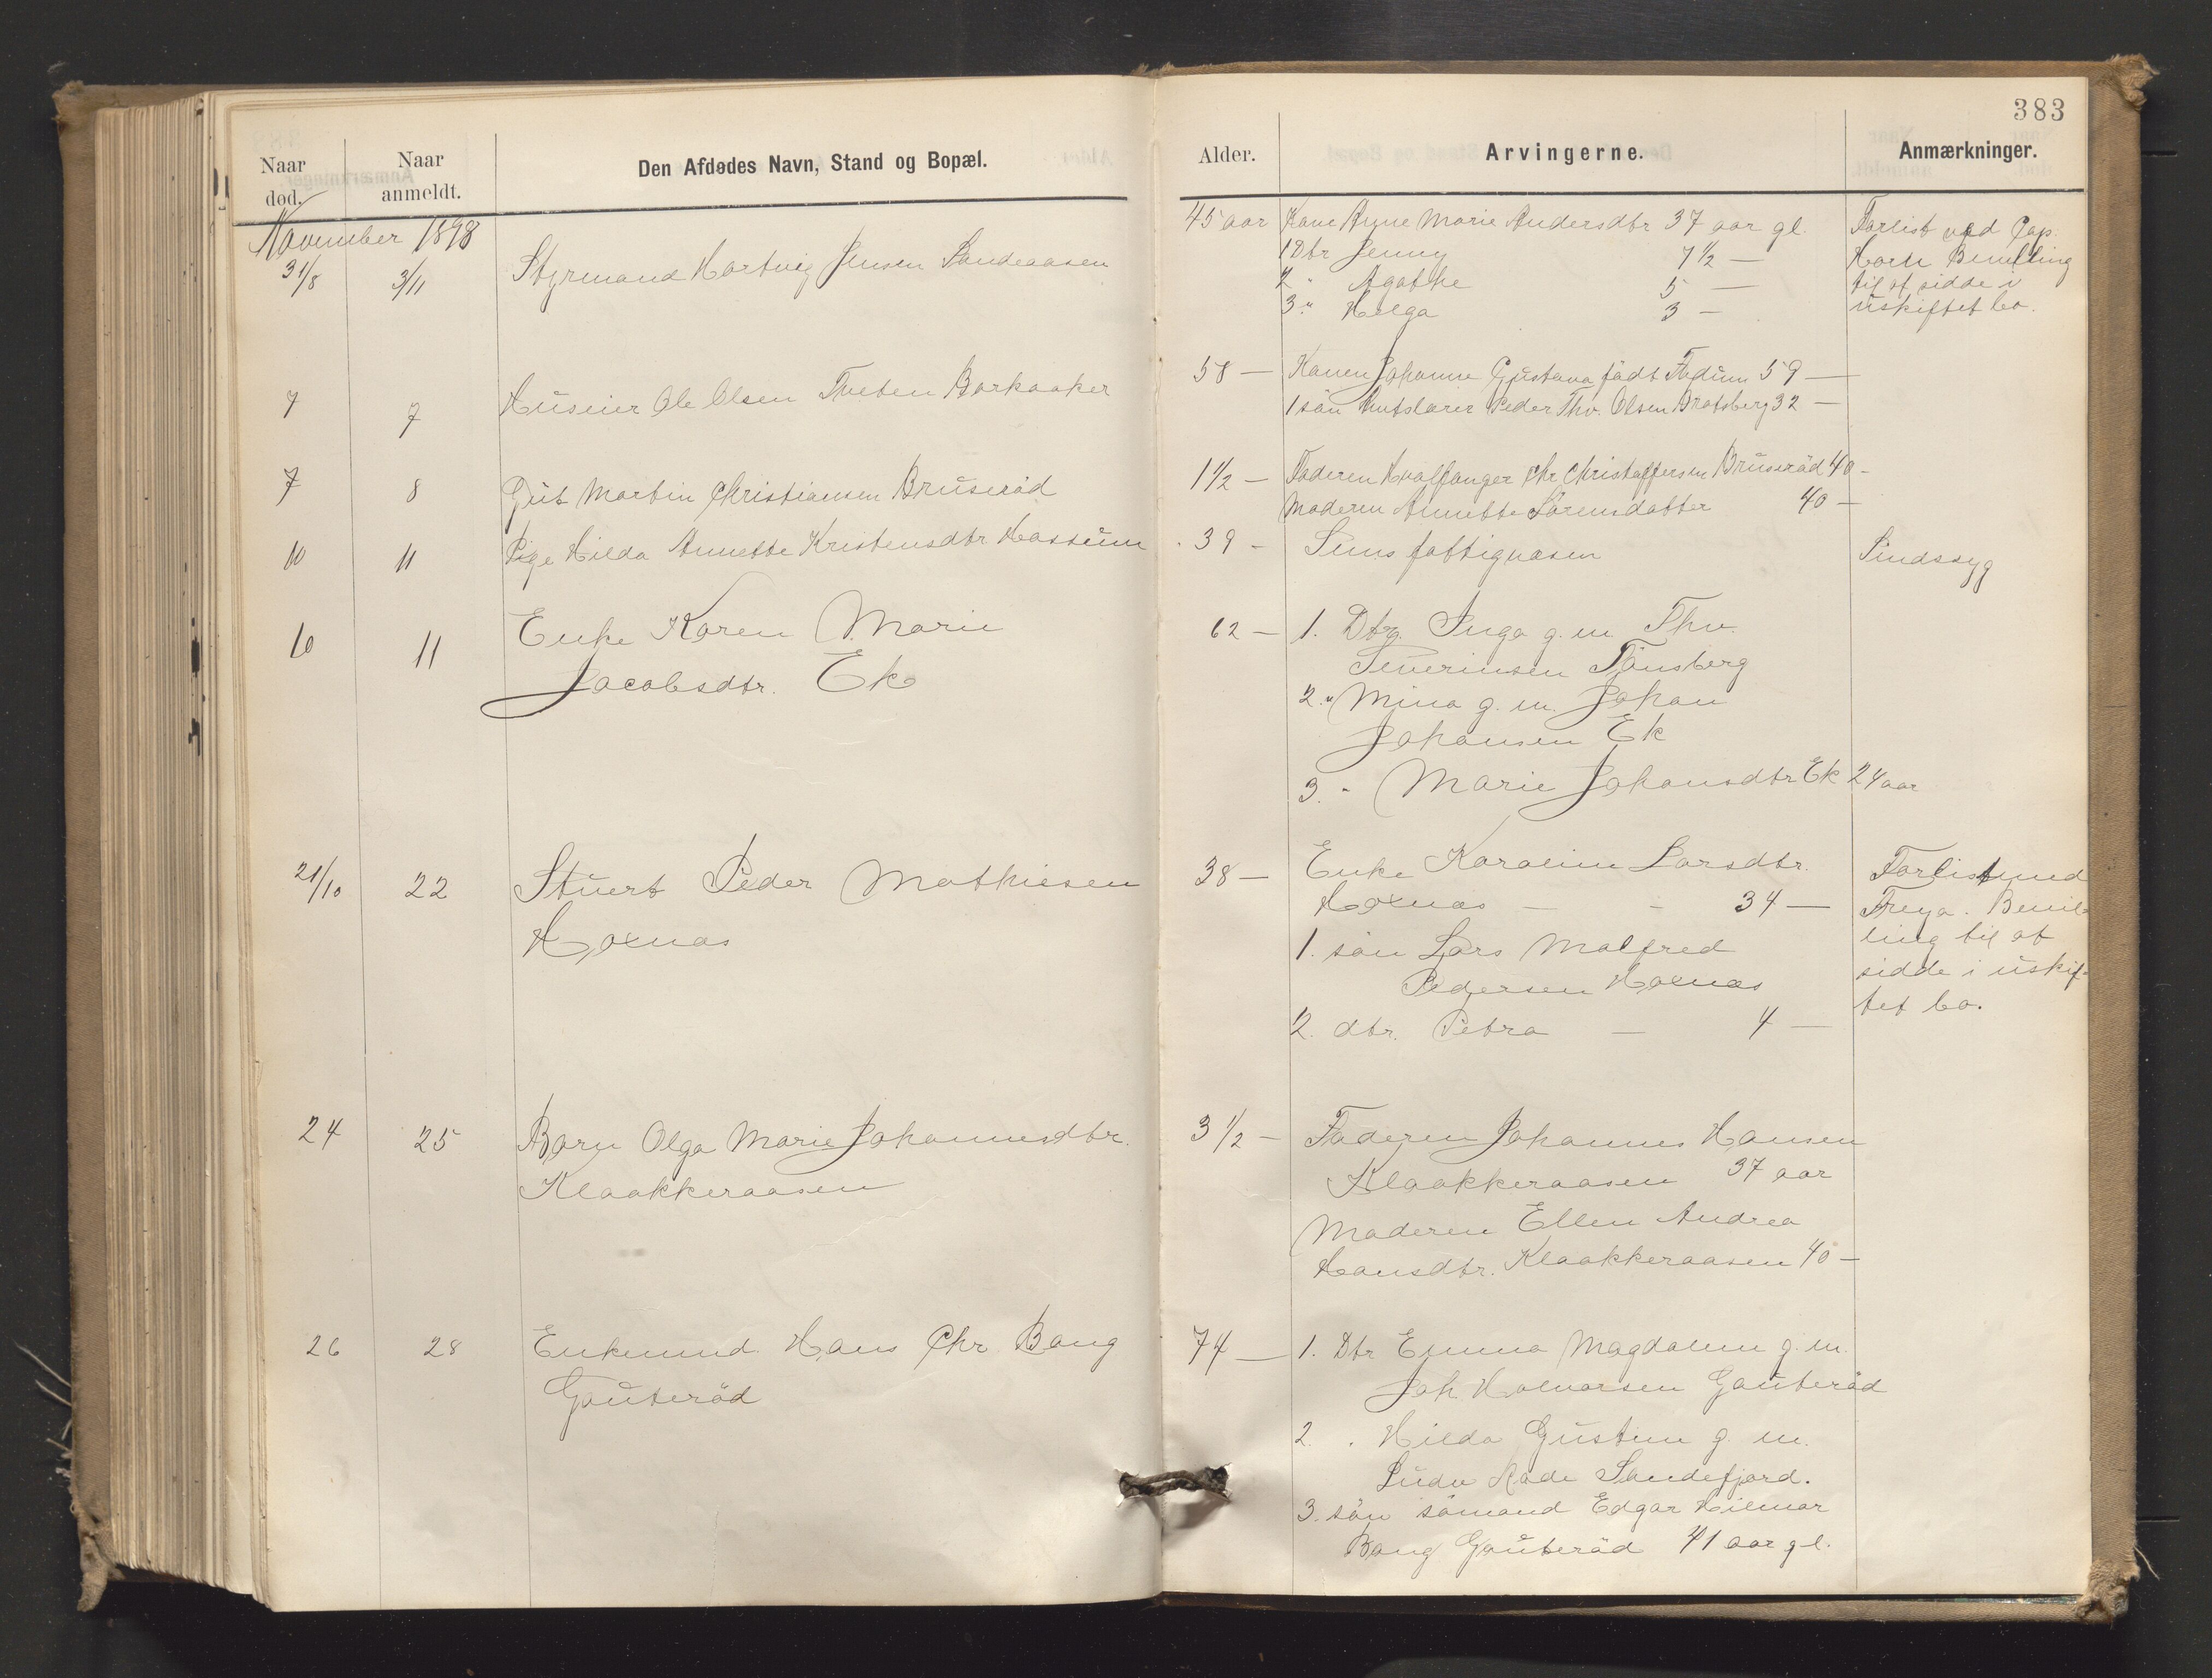 383
Naar død.
Naar anmeldt.
Den Afdødes Navn, Stand og Bopæl.
Alder.
Arvingerne.
Anmærkninger.
November 1898
31/8 3/11 Styrmand Hartvig Jensen Sandeaasen
45 aar Kone Anne Marie Andersdtr 37 aar gl.
1 Dtr Jenny 7 1/2 —
2 " Agathe 5 —
3 " Helga 3 —
Forlist ved Cap
Horn Bevilling
til at sidde i
uskiftet bo.
7 7 Huseier Ole Olsen Tveten Barkaaker
58 — Konen Johanne Gustava född Fadum 59 —
1 sön Peder Thv. Olsen Bratsberg 32 —
7 8 Gut Martin Christiansen Bruseröd
1 1/2 — Faderen Hvalfanger Chr Christoffersen Bruseröd 40 —
Moderen Annette Sörensdatter 40 —
10 11 Pige Hilda Annette Kristensdtr Hassum
39 — Sems fattigvæsen
Sindssyg
10 11 Enke Karen Marie
Jacobsdtr. Ek
62 — 1. Dtr. Inga g. m Thv.
Severinsen Tönsberg
2. " Mina g. m. Johan
Johansen Ek
3. " Marie Johansdtr Ek 24 aar
21/10 22 Stuert Peder Mathisen
Hoxnæs
38 — Enke Karoline Larsdtr.
Hoxnæs — - 34 —
1. sön Lars Malfred
Pedersen Hoxnæs
2. dtr. Petra — 4 —
Forlist med
Freya. Bevil-
ling til at
sidde i uskif-
tet bo.
24 25 Barn Olga Marie Johannesdtr.
Klaakkeraasen
3 1/2 — Faderen Johannes Hansen
Klaakkeraasen 37 aar
Moderen Ellen Andrea
Hansdtr. Klaakkeraasen 40 —
26 28 Enkemnd. Hans Chr Bang
Gauteröd
74 — 1. Dtr Emma Magdalene g. m.
Joh Halvorsen Gauteröd
2. " Hilda Gustine g. m.
Ludv Sandefjord.
3. sön sömand Edgar Hilmar
Bang Gauteröd 41 aar gl.